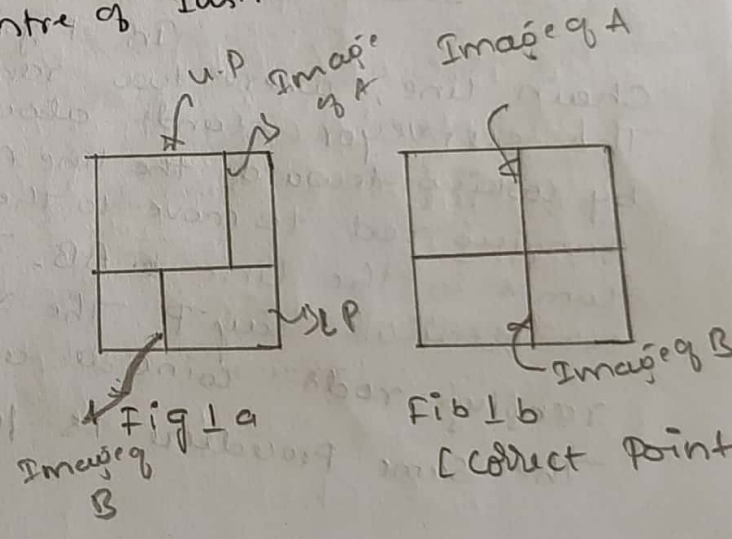 ntre of
U.P
Image
of A
Image of A
LP
Image of B
Fig 1 a
Image of
B
Fib 1 b
[correct point